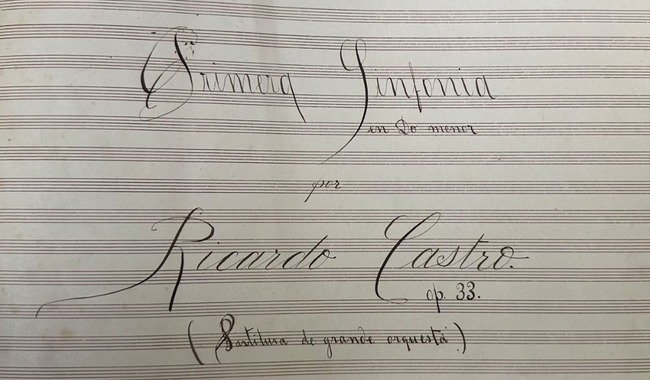 Primera Sinfonia
en Do menor
por
Ricardo Castro.
op. 33.
(Partitura de grande orquesta.)